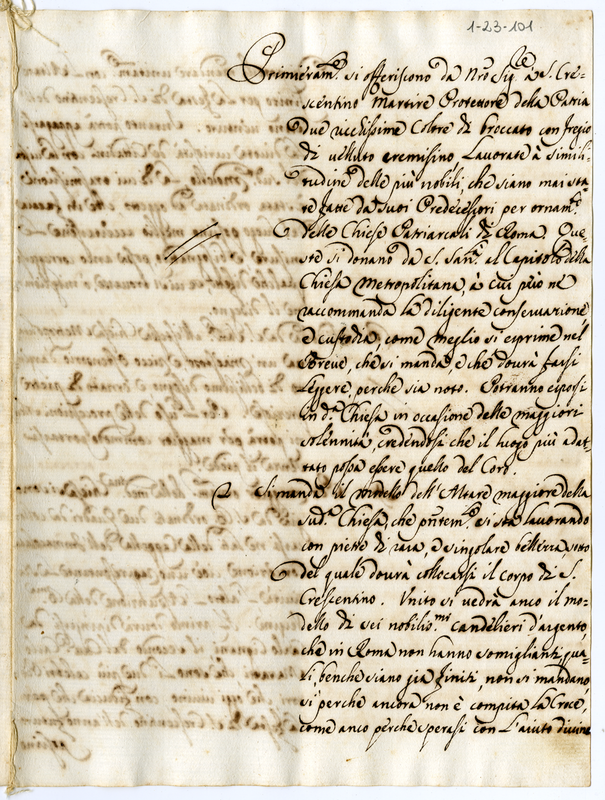 1-23-101
Primieram.te si offeriscono da Nro Sig.re à S. Cre-
scentino Martire Protettore della Patria
due ricchissime Coltre di broccato con fregio
di velluto cremisino, Lavorate à simili-
tudine delle più nobili, che siano mai sta
te fatte da suoi Predecessori per ornam.to
delle Chiese Patriarcali di Roma. Que-
ste si donano da S. San.tà al Capitolo della
Chiesa Metropolitana, à cui più ne
raccommanda la diligente conservazione
e custodia, come meglio si esprime nel
Breve, che si manda, e che dovrà farsi
leggere, perche sia noto. Potranno esporsi
in d.a Chiesa in occasione delle maggiori
solennità, credendosi che il luogo più adat-
tato possa essere quello del Coro.
2 Si manda il modello dell'Altare maggiore della
sud.a Chiesa, che pntem.te si stà lavorando
con pietre di rara, e singolare bellezza, sotto
del quale dovrà collocarsi il corpo di S.
Crescentino. Unito si vedrà anco il mo-
dello di sei nobilis.mi candelieri d'argento,
che in Roma non hanno somiglianti, qua-
li, benche siano già finiti, non si mandano
si perche ancora non è compita la Croce,
come anco perche sperasi con l'aiuto divino